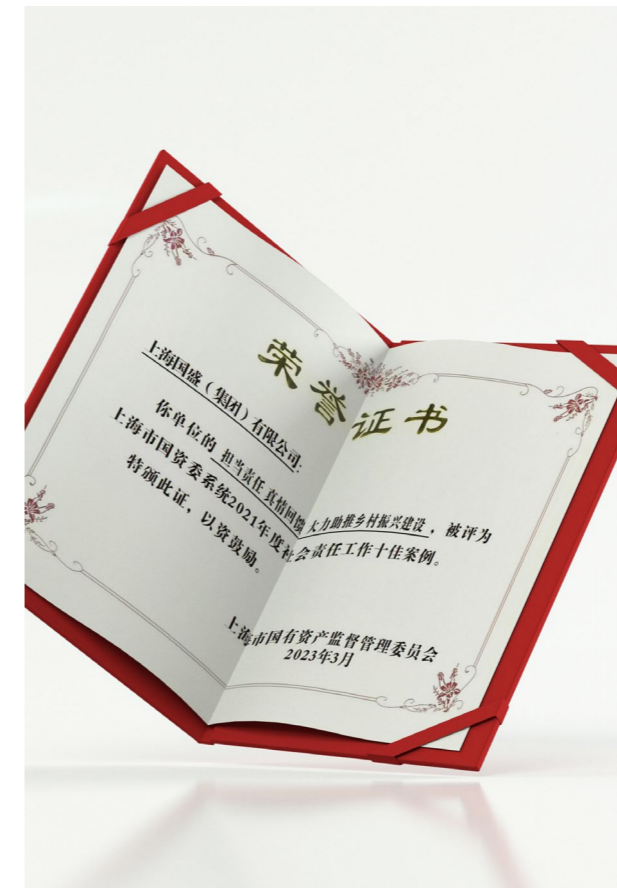 荣誉证书
上海国盛（集团）有限公司:
你单位的 担当责任 真情回馈 大力助推乡村振兴建设，被评为
上海市国资委系统2021年度社会责任工作十佳案例。
特颁此证，以资鼓励。
上海市国有资产监督管理委员会
2023年3月